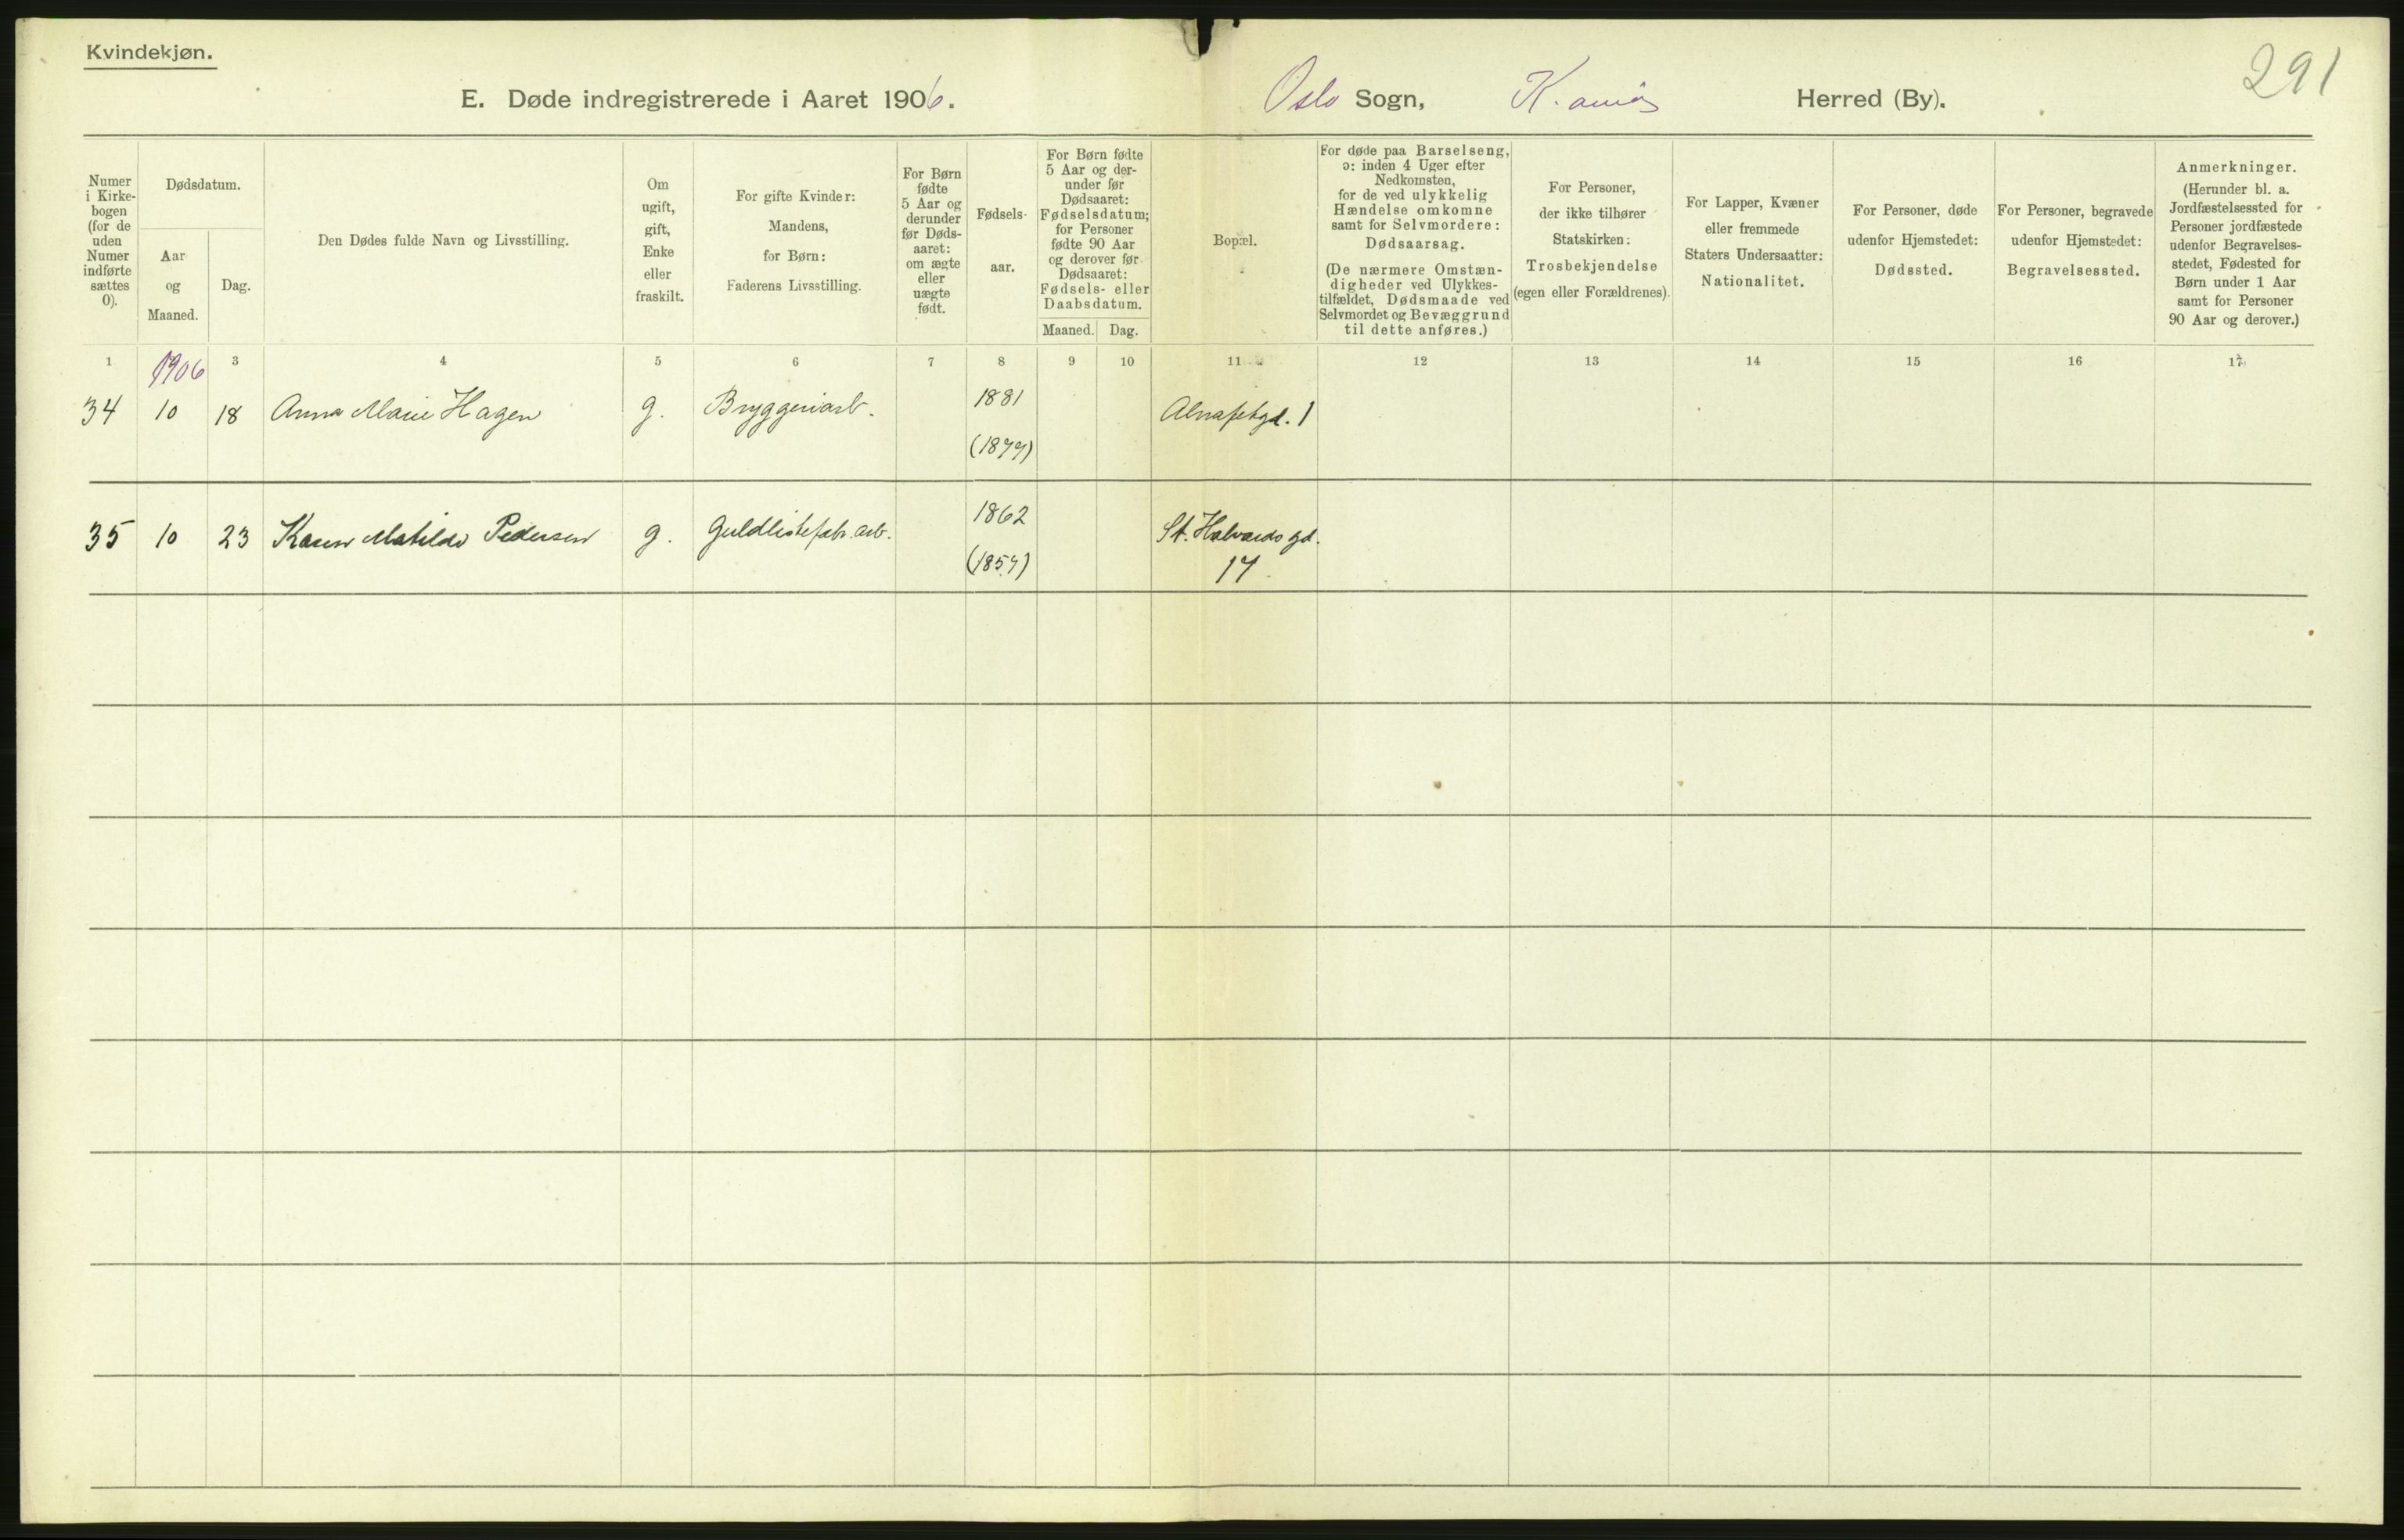 Kvindekjøn.
291
E. Døde indregistrerede i Aaret 1906. Oslo Sogn, K.ania Herred (By).
Numer i Kirke-bogen (for de uden Numer indførte sættes 0).
Dødsdatum.
Aar og Maaned.
Dag.
Den Dødes fulde Navn og Livsstilling.
Om ugift, gift, Enke eller fraskilt.
For gifte Kvinder: Mandens, for Børn: Faderens Livsstilling.
For Børn fødte 5 Aar og derunder før Døds-aaret: om ægte eller uægte født.
Fødsels-aar.
For Børn fødte 5 Aar og der-under før Dødsaaret: Fødselsdatum; for Personer fødte 90 Aar og derover før Dødsaaret: Fødsels- eller Daabsdatum.
Maaned. Dag.
Bopæl.
For døde paa Barselseng, ɔ: inden 4 Uger efter Nedkomsten, for de ved ulykkelig Hændelse omkomne samt for Selvmordere: Dødsaarsag.
(De nærmere Omstæn-digheder ved Ulykkes-tilfældet, Dødsmaade ved Selvmordet og Bevæggrund til dette anføres.)
For Personer, der ikke tilhører Statskirken: Trosbekjendelse (egen eller Forældrenes).
For Lapper, Kvæner eller fremmede Staters Undersaatter: Nationalitet.
For Personer, døde udenfor Hjemstedet: Dødssted.
For Personer, begravede udenfor Hjemstedet: Begravelsessted.
Anmerkninger.
(Herunder bl. a. Jordfæstelsessted for Personer jordfæstede udenfor Begravelses-stedet, Fødested for Børn under 1 Aar samt for Personer 90 Aar og derover.)
1 1906 3 4 5 6 7 8 9 10 11 12 13 14 15 16 17
34 10 18 Anna Marie Hagen g. Bryggeriarb. 1881 Alnafetgd. 1
(1877)
35 10 23 Karen Matilde Pedersen g. Guldlistefabr.arb. 1862 St. Halvards gd.
(1857) 17